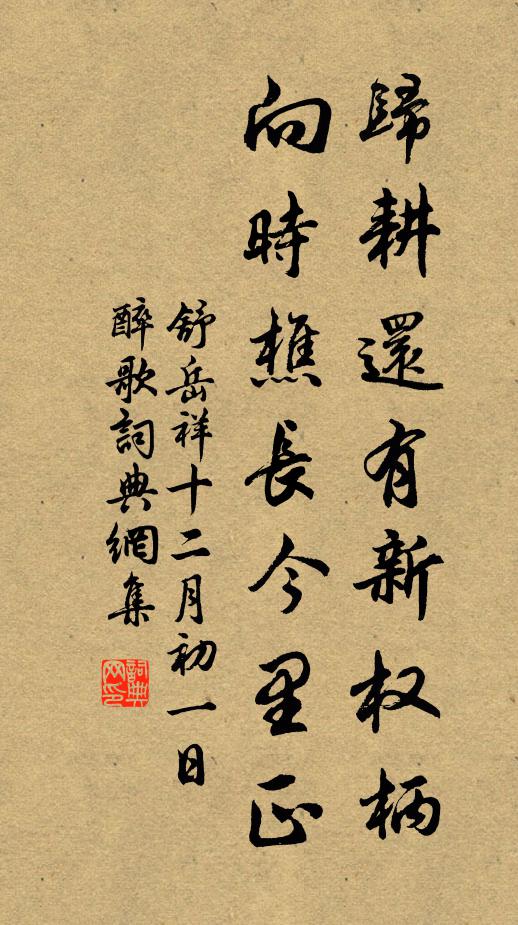 歸耕還有新权柄
向時樵長今里正
舒岳祥十二月初一日
醉歌詞典網集
詞典网印